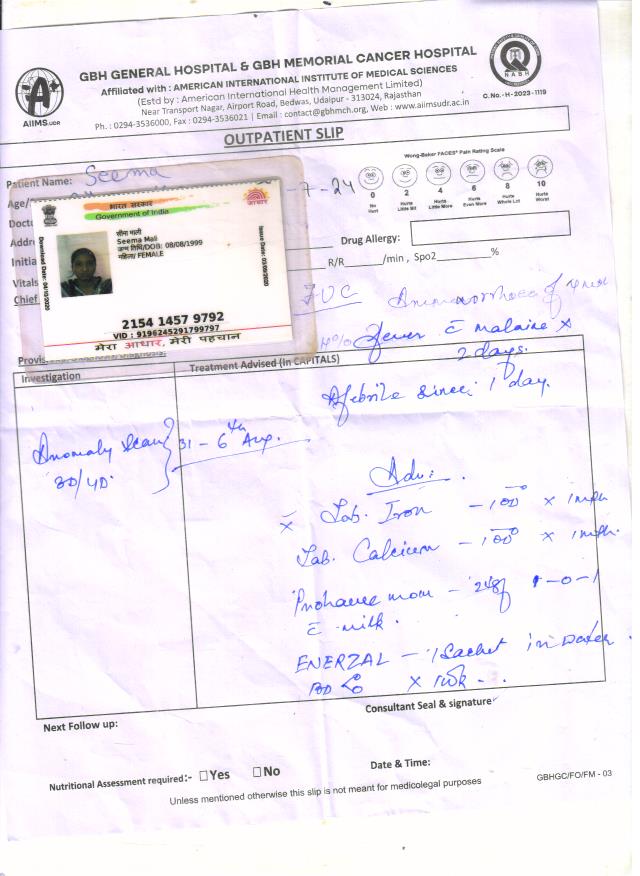 GBH GENERAL HOSPITAL & GBH MEMORIAL CANCER HOSPITAL
Affiliated with : AMERICAN INTERNATIONAL INSTITUTE OF MEDICAL SCIENCES
(Estd by : American International Health Management Limited)
Near Transport Nagar, Airport Road, Bedwas, Udaipur - 313024, Rajasthan
Ph. : 0294-3536000, Fax : 0294-3536021 | Email : contact@gbhmch.org, Web : www.aiimsudr.ac.in
AIIMS.UDR
NABH
C.No.-H-2023-1119
OUTPATIENT SLIP
Patient Name: Seema
-7-24
Wong-Baker FACES® Pain Rating Scale
0 2 4 6 8 10
No Hurt
Hurts Little Bit
Hurts Little More
Hurts Even More
Hurts Whole Lot
Hurts Worst
Age/
Doctu
Addre
Initia
Vitals
Chief
Drug Allergy:
R/R /min , Spo2 %
भारत सरकार
Government of India
आधार
सीमा माली
Seema Mali
जन्म तिथि/DOB: 08/08/1999
महिला/ FEMALE
2154 1457 9792
VID : 9196245291799797
मेरा आधार, मेरी पहचान
fever c̄ malaise x
2 days.
Afebrile since 1 day.
Investigation
Treatment Advised (in CAPITALS)
Anomaly Scan
3D/4D.
31 - 6th Aug.
Adv:
Tab. Iron - 1 OD x 1 mth
Tab. Calcium - 1 OD x 1 mth.
Prohance mom - 1-0-1
c̄ milk.
ENERZAL - 1 Sachet in water
x 1 wk
Consultant Seal & signature
Next Follow up:
Date & Time:
Nutritional Assessment required:- Yes No
Unless mentioned otherwise this slip is not meant for medicolegal purposes
GBHGC/FO/FM - 03